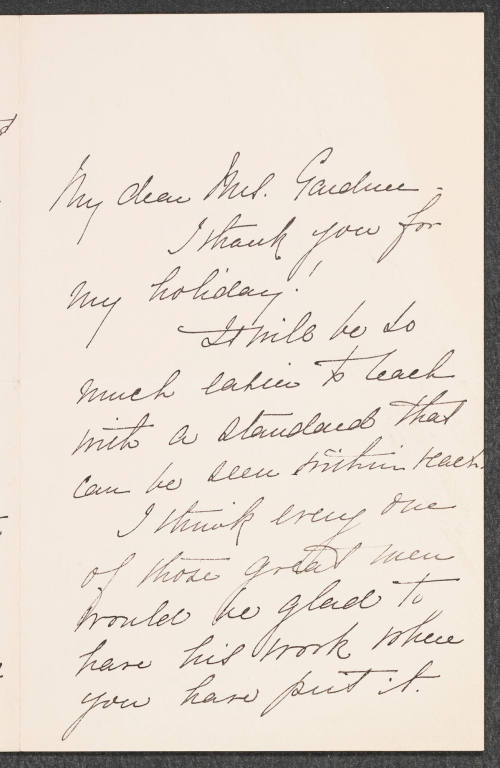 My dear Mrs. Gardner -
I thank you for
my holiday!
It will be so
much easier to teach
with a standard that
can be seen within reach.
I think every one
of those great men
would be glad to
have his work where
you have put it.